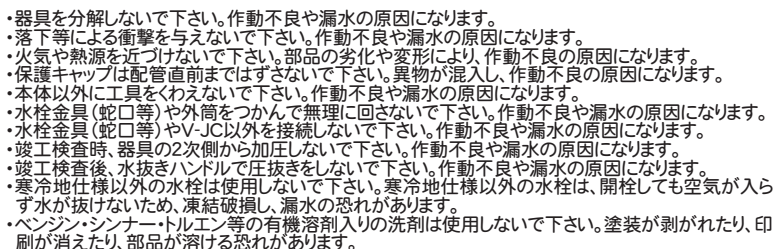 ・器具を分解しないで下さい。作動不良や漏水の原因になります。
・落下等による衝撃を与えないで下さい。作動不良や漏水の原因になります。
・火気や熱源を近づけないで下さい。部品の劣化や変形により、作動不良の原因になります。
・保護キャップは配管直前まではずさないで下さい。異物が混入し、作動不良の原因になります。
・本体以外に工具をくわえないで下さい。作動不良や漏水の原因になります。
・水栓金具(蛇口等)や外筒をつかんで無理に回さないで下さい。作動不良や漏水の原因になります。
・水栓金具(蛇口等)やV-JC以外を接続しないで下さい。作動不良や漏水の原因になります。
・竣工検査時、器具の2次側から加圧しないで下さい。作動不良や漏水の原因になります。
・竣工検査後、水抜きハンドルで圧抜きをしないで下さい。作動不良や漏水の原因になります。
・寒冷地仕様以外の水栓は使用しないで下さい。寒冷地仕様以外の水栓は、開栓しても空気が入ら
ず水が抜けないため、凍結破損し、漏水の恐れがあります。
・ベンジン・シンナー・トルエン等の有機溶剤入りの洗剤は使用しないで下さい。塗装が剥がれたり、印
刷が消えたり、部品が溶ける恐れがあります。